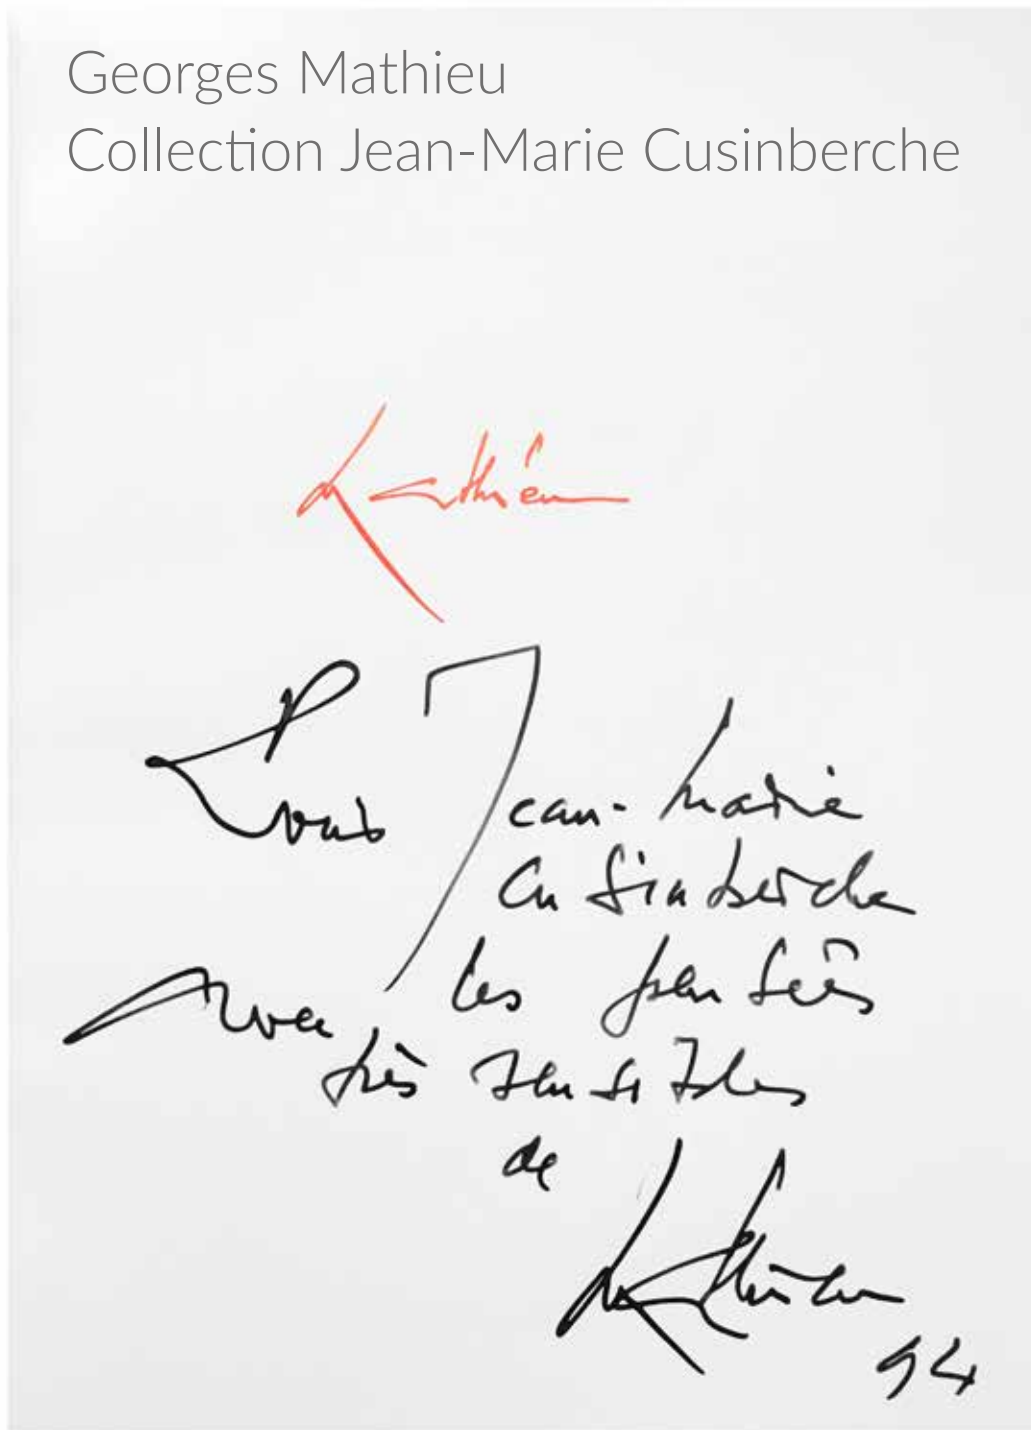 Georges Mathieu
Collection Jean-Marie Cusinberche
Mathieu
Pour Jean-Marie
Cusinberche
Avec les pensées
très sensibles
de
Mathieu
94